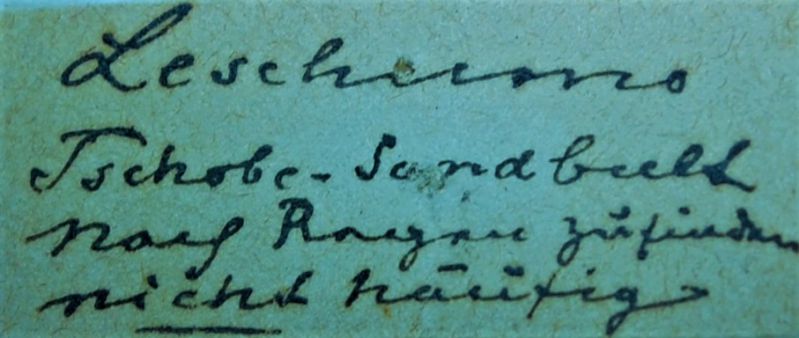 Leschumo
Tschobe-Sandbult
nach Regen zu finden
nicht häufig